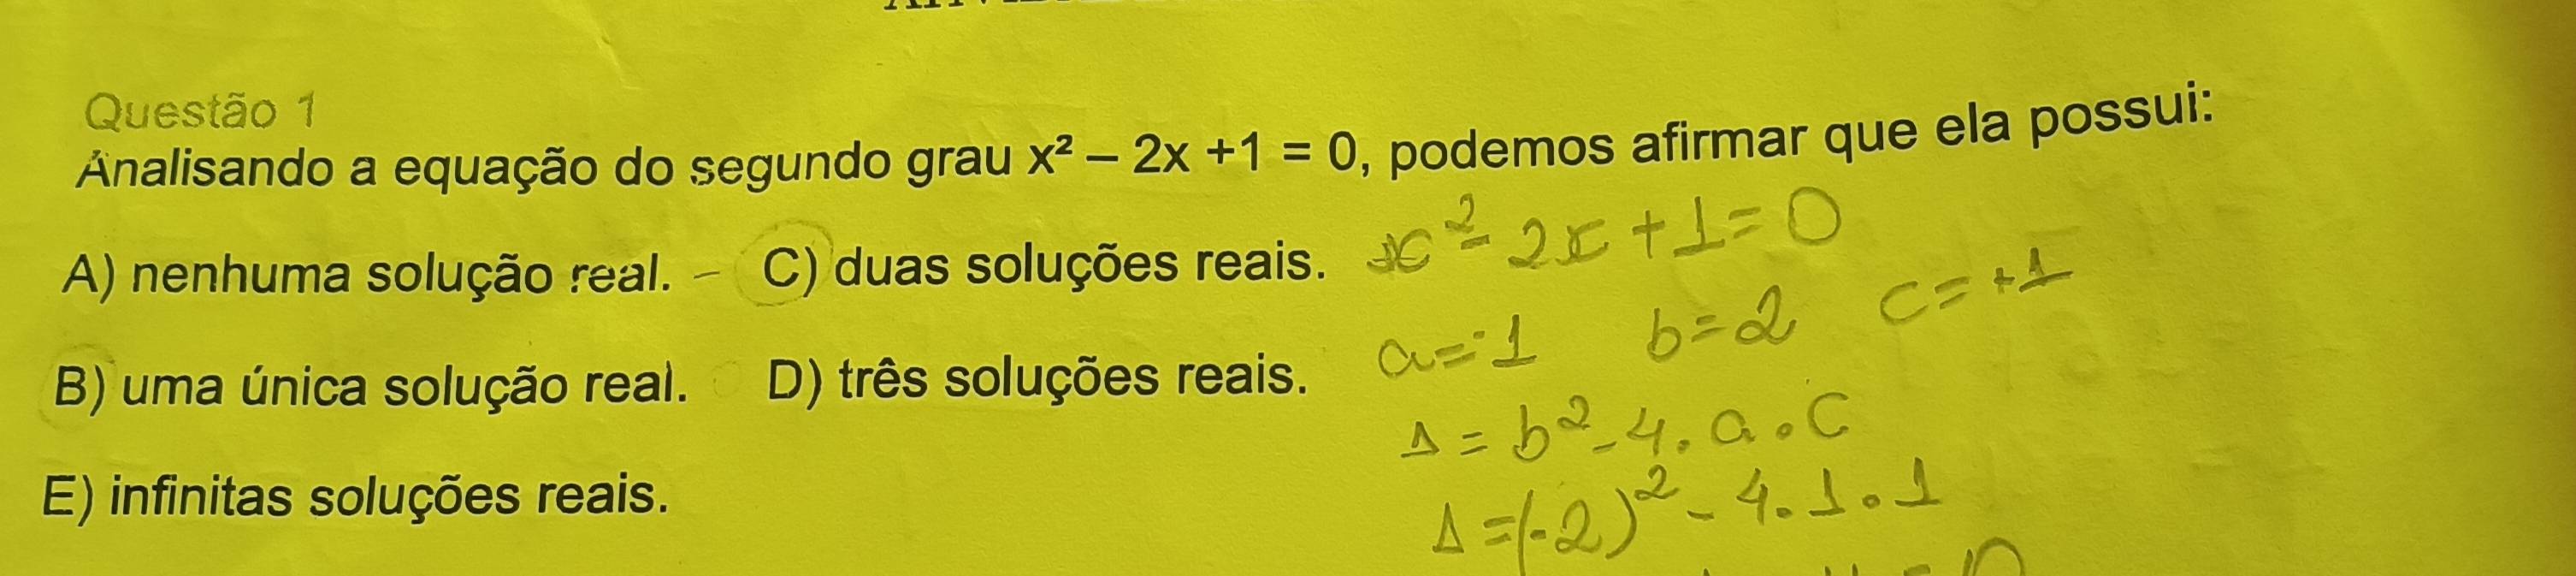 Questão 1
Analisando a equação do segundo grau x² – 2x +1 = 0, podemos afirmar que ela possui:
A) nenhuma solução real. – C) duas soluções reais.
x² - 2x + 1 = 0
a = 1 b = 2 c = +1
B) uma única solução real. D) três soluções reais.
Δ = b² - 4 . a . c
E) infinitas soluções reais.
Δ = (-2)² - 4 . 1 . 1